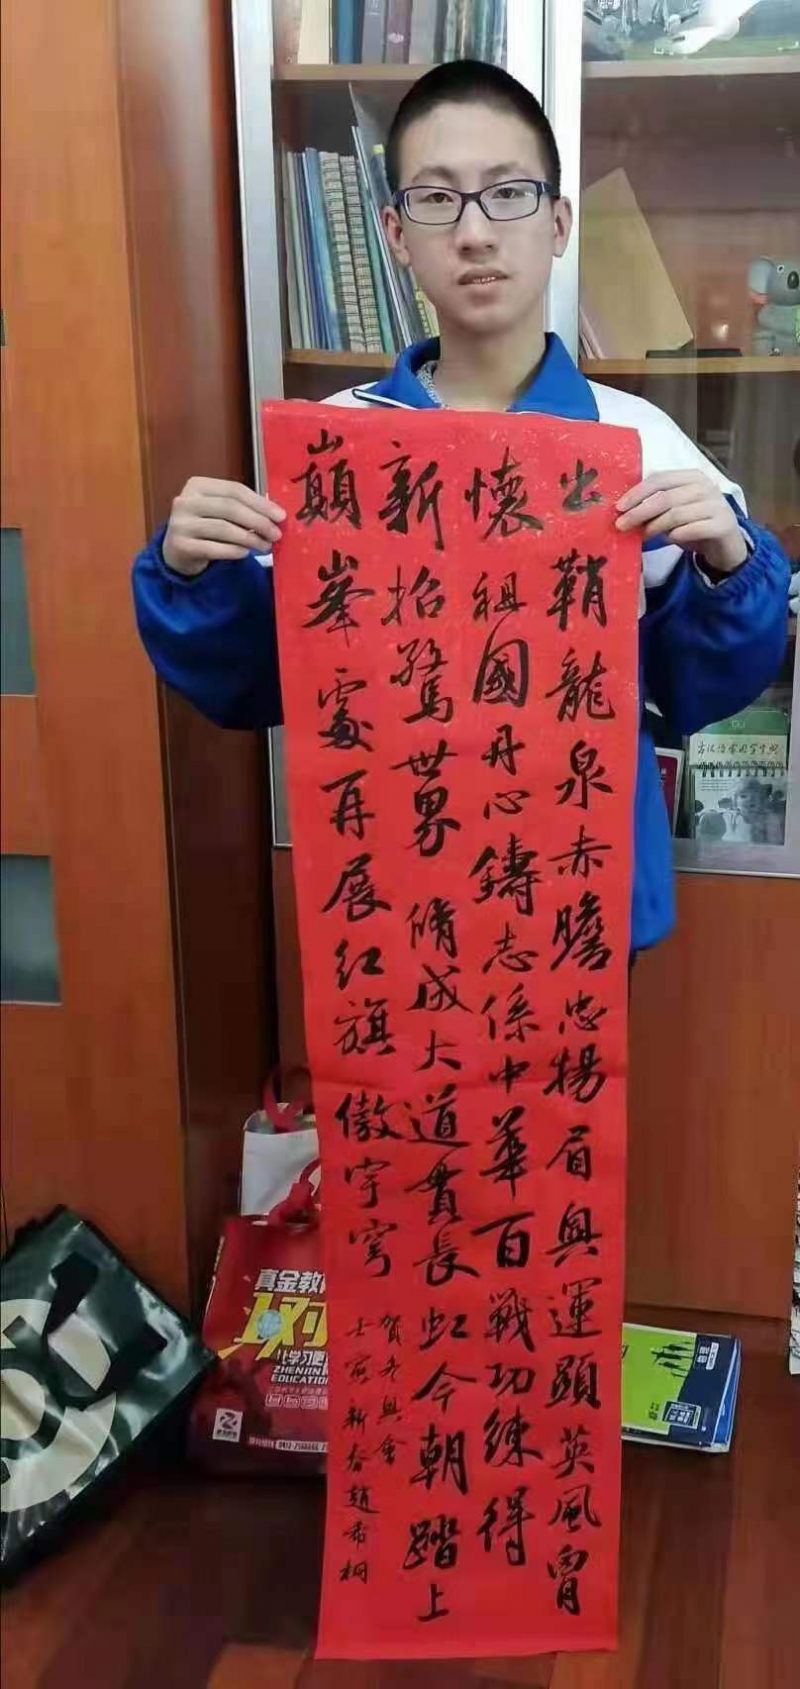 出鞘龍泉赤膽忠揚眉奥運顯英風胷
懷祖國丹心鑄志係中華百戰功練得
新招驚世界脩成大道貫長虹今朝踏上
巔峯處再展紅旗傲宇穹
賀冬奥會
壬寅新春趙希桐
真金教
ZHENJIN
EDUCATION